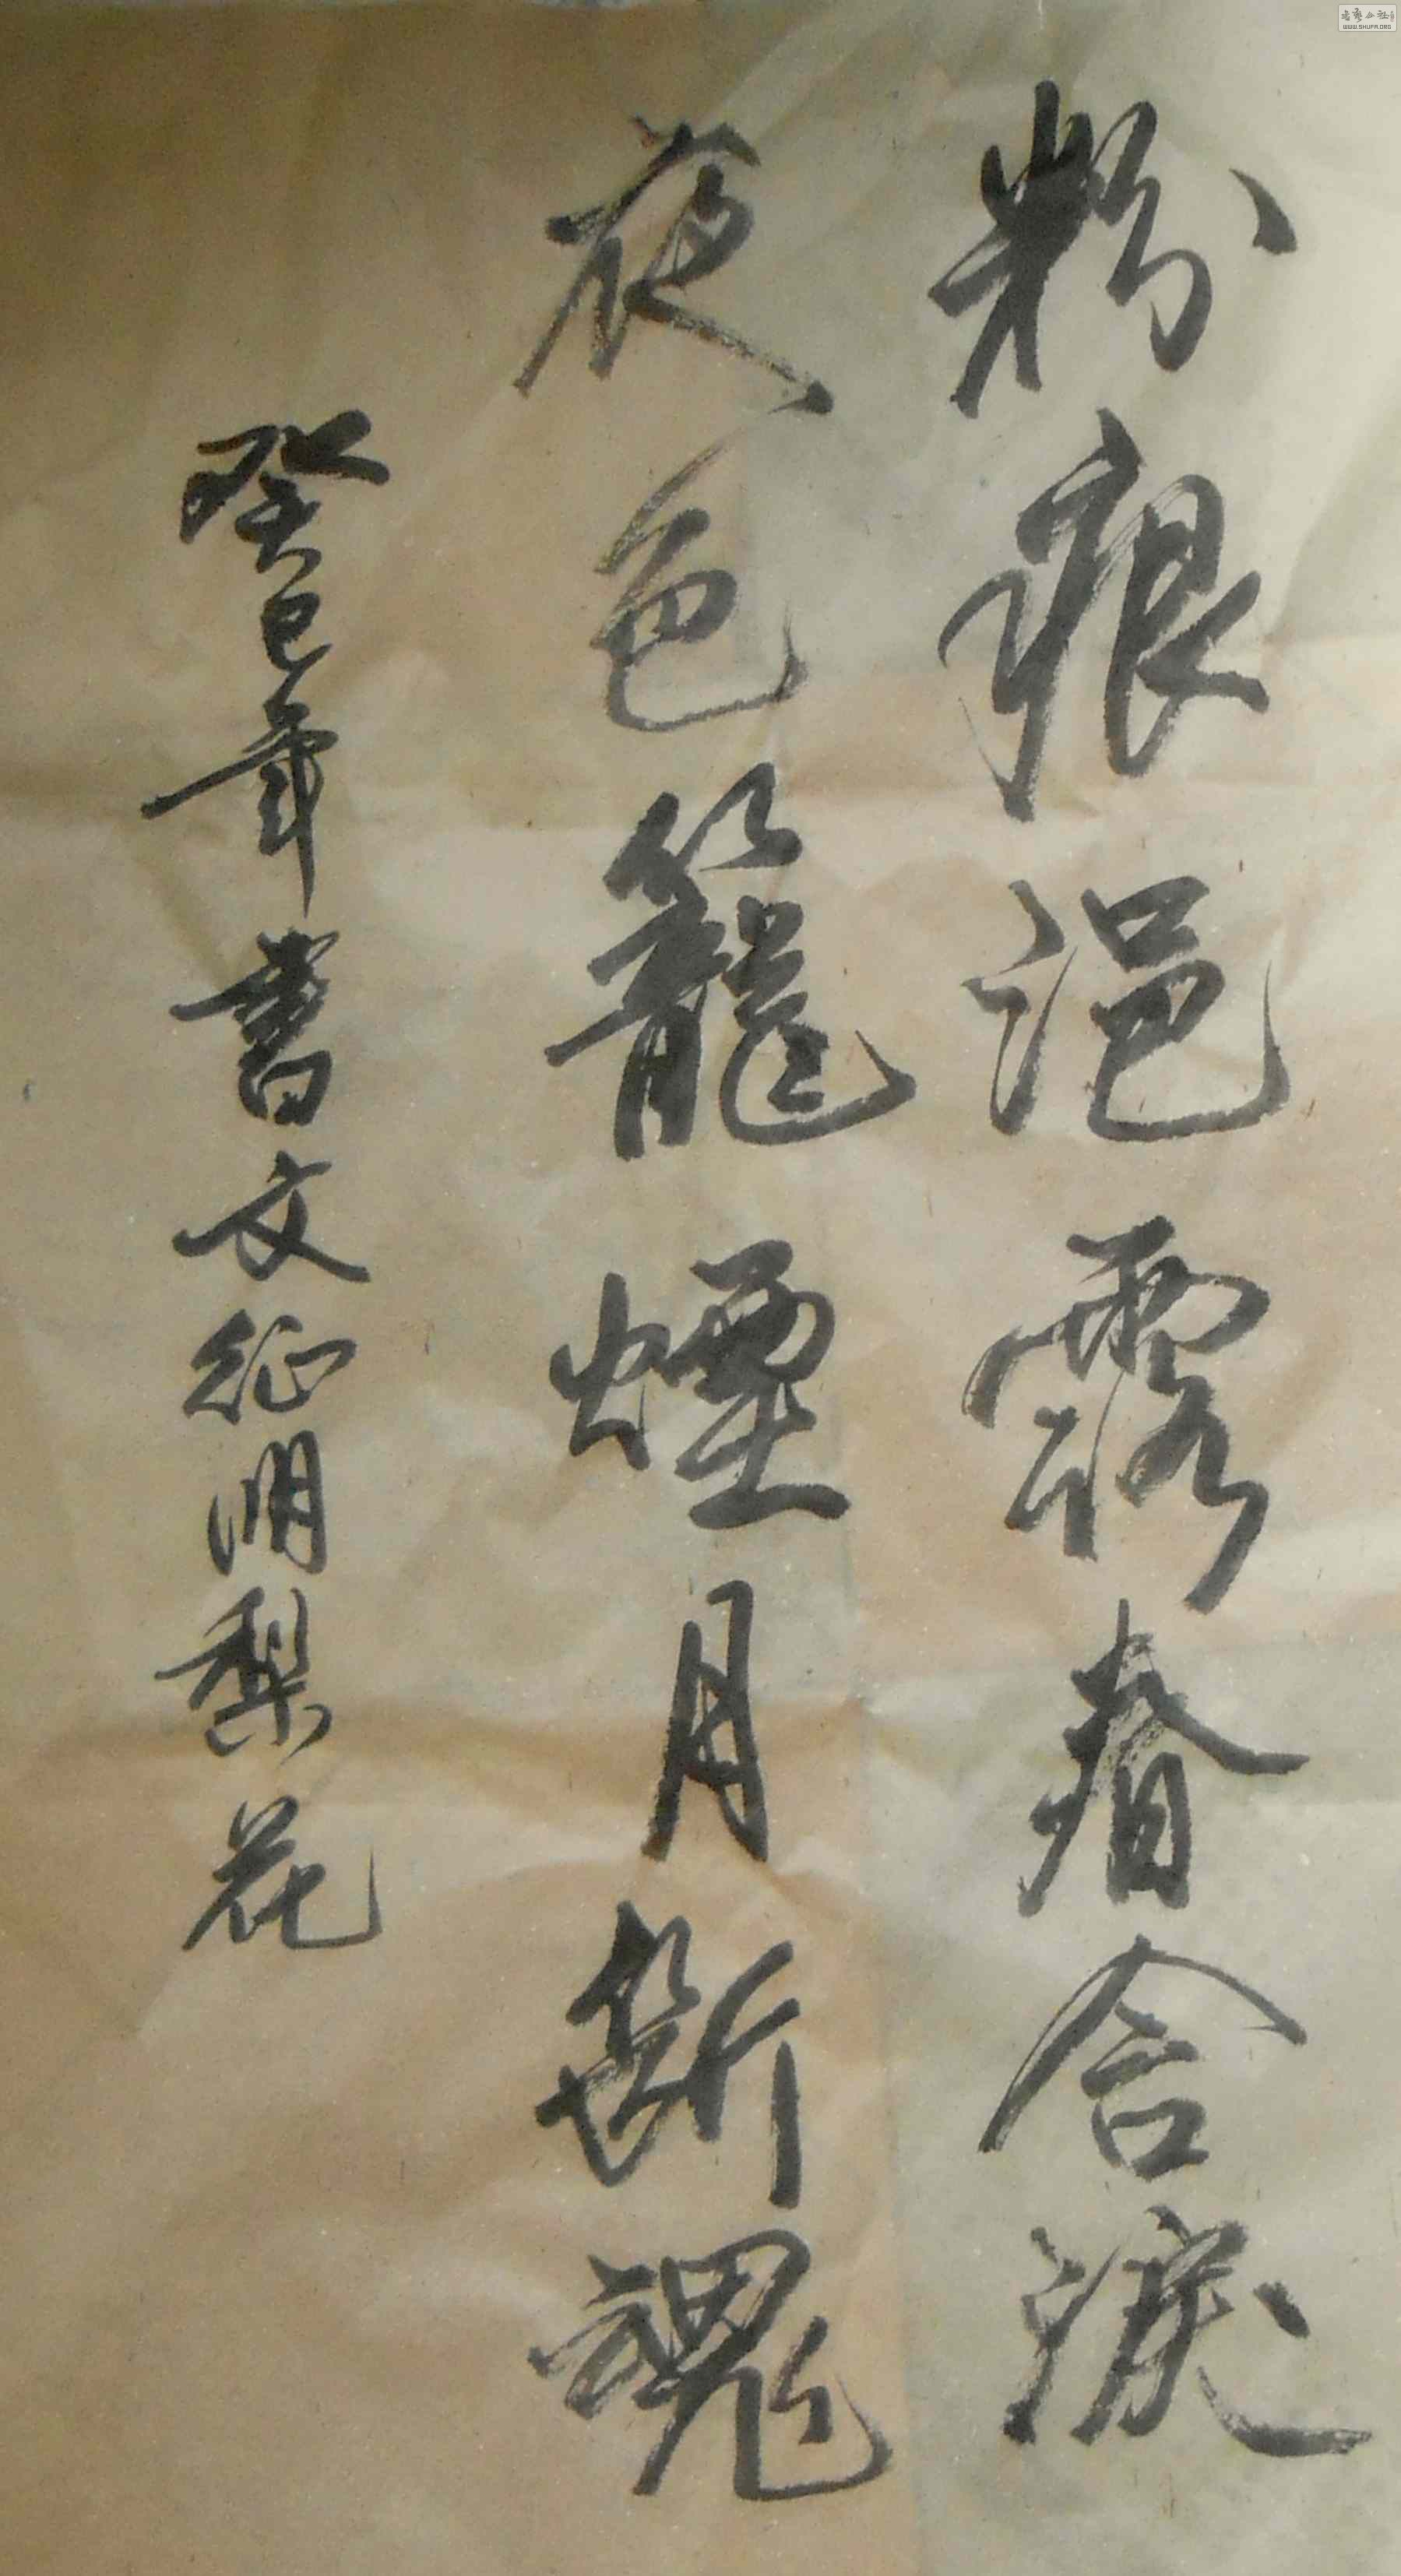 粉痕浥露春含淚
夜色籠煙月斷魂
癸巳年書文征明梨花
WWW.SHUFA.ORG